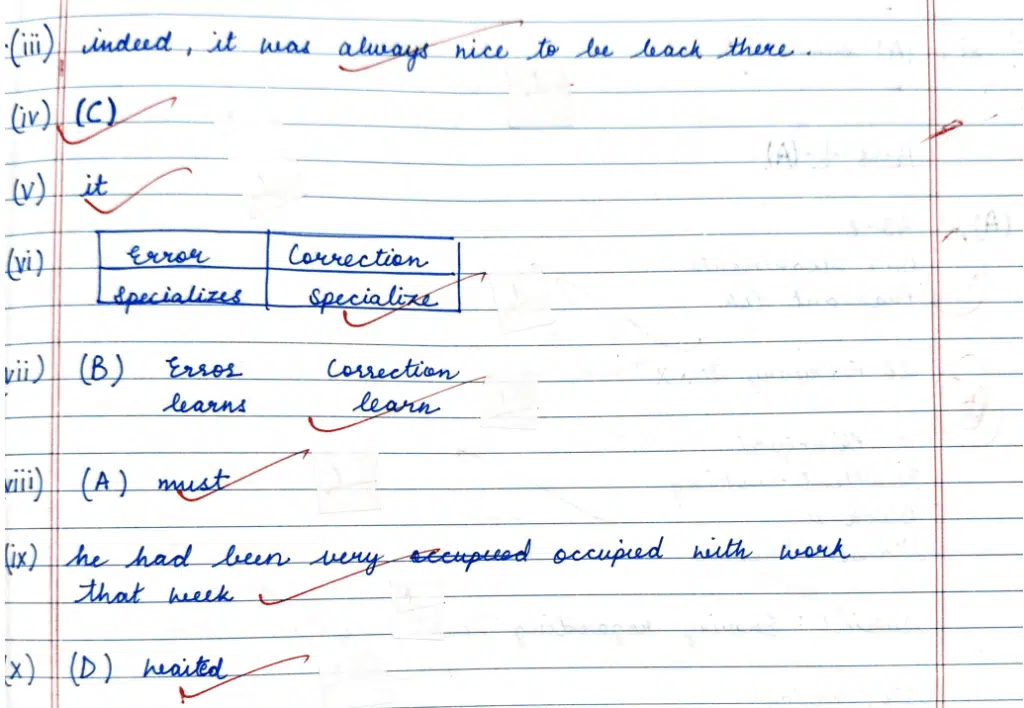 (iii) indeed, it was always nice to be back there.
(iv) (C)
(v) it
(vi) Error Correction
Specializes Specialize
vii) (B) Error Correction
learns learn
viii) (A) must
(ix) he had been very occupied occupied with work
that week
x) (D) waited